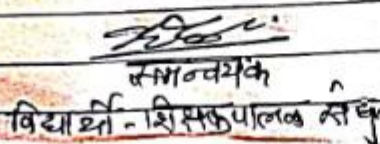 समन्वयक
विद्यार्थी - शिक्षक पालक संघ